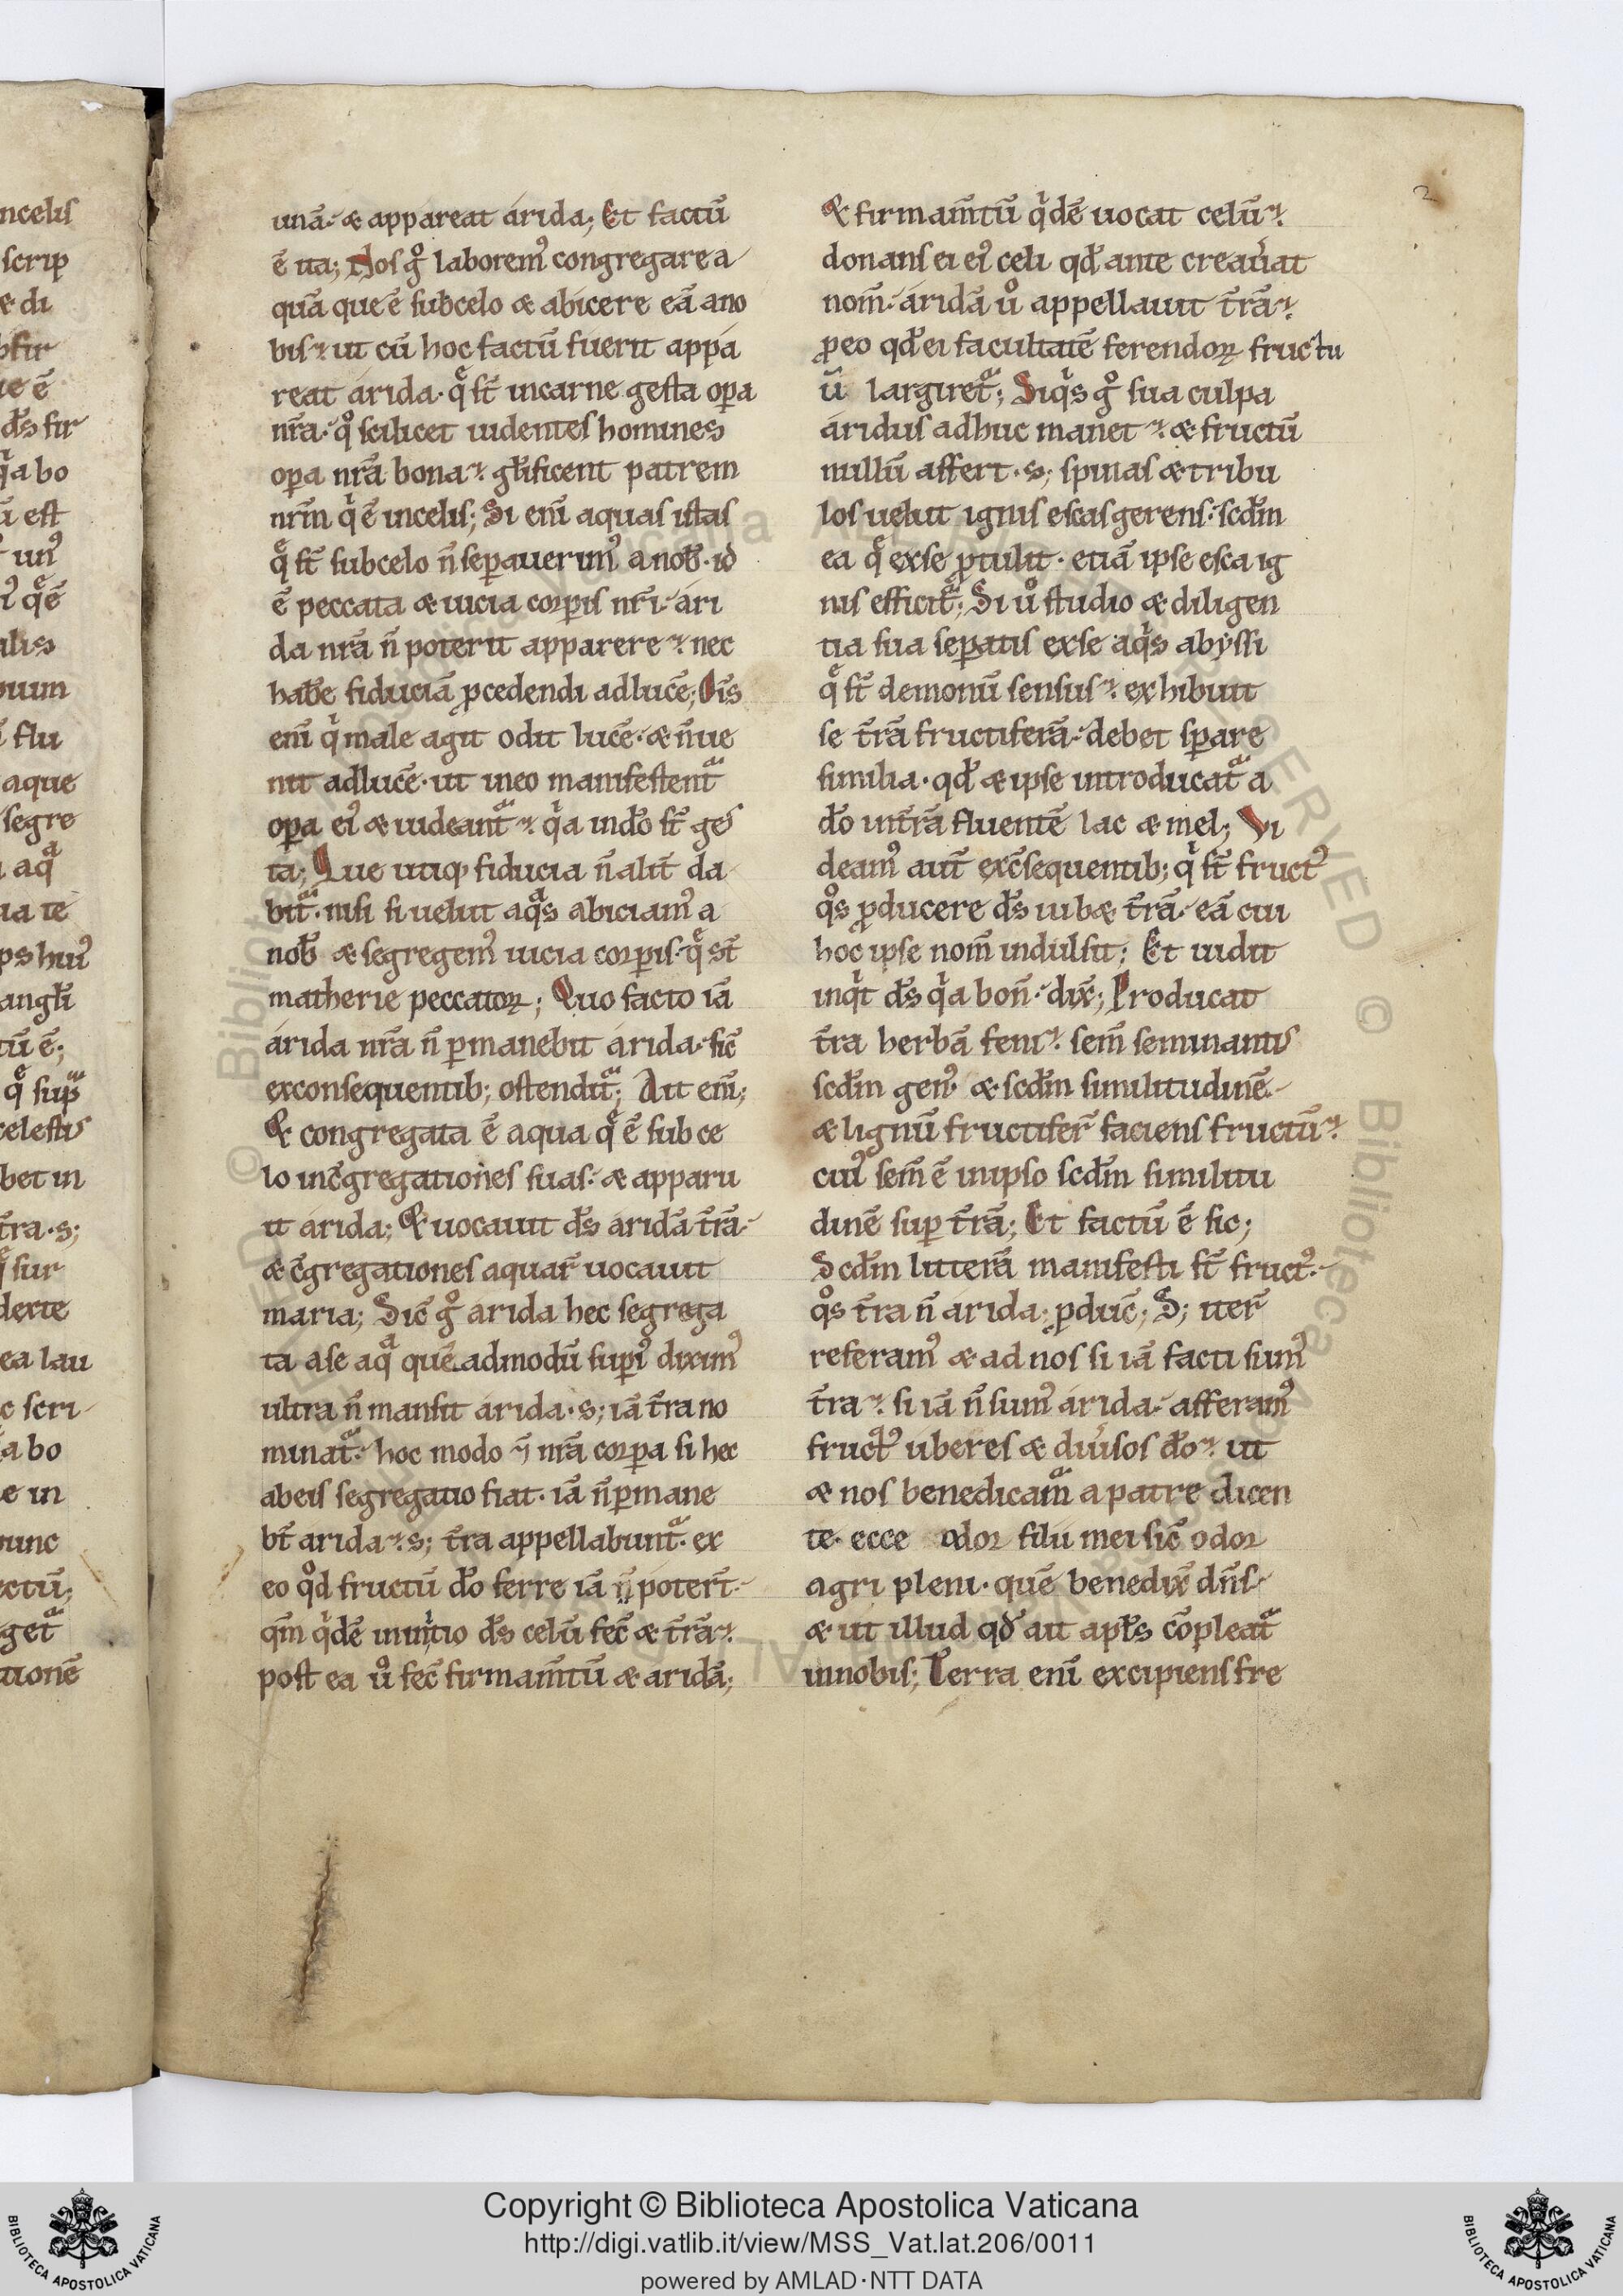 ncelis
scrip
æ di
bfir
ue ē
d̄s fir
q̇a bo
ū est
unꝰ
ꝰ qͤ ē
alis
ouum
flu
aque
segre
aqᷓ
ua te
ps huiꝰ
angl̄i
tū ē;
qͤ supᷓ
celestis
bet in
t̄ra·s;
sur
dexte
ea lau
c scri
a bo
e in
nunc
ectū;
getᷓ
tionē
unā· æ appareat arida; Et factū
ē ita; Nos gͦ laboremꝰ congregare a
quā que ē subcelo æ abicere eā a no
bis· ut cū hoc factū fuerit appa
reat arida· qͤ st̄ incarne gesta oꝑa
nr̄a· qͦ scilicet uidentes homines
oꝑa nr̄a bona· gl̄ificent patrem
nr̄m qⁱ ē incelis; Si eni̅ aquas istas
qͤ st̄ subcelo n̄ seꝑauerimꝰ a nob̄· id
ē peccata æ uicia corꝑis nr̄i· ari
da nr̄a n̄ poterit apparere· nec
hab̄e fiduciā ꝓcedendi adlucē; Om̄s
eni̅ qⁱ male agit odit lucē· æ n̄ ue
nit adlucē· ut ineo manifestent᷑
oꝑa eiꝰ æ uideant᷑· qⁱa indo̅ st̄ ges
ta; Que utiqꝫ fiducia n̄ alit̄ da
bit᷑· nisi si uelut aqᷓs abiciamꝰ a
nob̄ æ segregemꝰ uicia corꝑis· qͤ st̄
matherie peccatoꝝ; Quo facto iā
arida nr̄a n̄ ꝑmanebit arida· sic̄
exconsequentib; ostendit᷑; Ait eni̅;
Et congregata ē aqua qͤ ē sub ce
lo inc̄gregationes suas· æ apparu
it arida; Et uocauit d̄s aridā t̄rā·
æ c̄gregationes aquar̄ uocauit
maria; Sic̄ gͦ arida hec segrega
ta a se aqᷓ quē admodū supiꝰ diximꝰ
ultra n̄ mansit arida·s; iā t̄ra no
minat᷑· hoc modo ⁊̄ nr̄a corꝑa si hec
abeis segregatio fiat· iā n̄ ꝑmane
bt̄ arida·s; t̄ra appellabunt᷑· ex
eo qͦd fructū do̅ ferre iā n̄ poter̄t·
qm̄ qⁱdē ininitio d̄s celū fec̄ æ t̄rā·
post ea uͦ fec̄ firmam̄tū æ aridā;
2
Et firmam̄tū qⁱdē uocat celū·
donans ei eiꝰ celi qd̄ ante creau̇at
nom̄· aridā uͦ appellauit t̄rā·
ꝓeo qd̄ ei facultatē ferendoꝝ fructu
ū largiret᷑; Siqⁱs gͦ sua culpa
aridus adhuc manet· æ fructū
nullū affert·s; spinas æ tribu
los uelut ignis escas gerens· scd̄m
ea qͤ exse ꝓtulit· etiā ipse esca ig
nis efficit᷑; Si uͦ studio æ diligen
tia sua seꝑatis exse aqᷓs abyssi
qͤ st̄ demonū sensus· exhibuit
se t̄rā fructiferā· debet sꝑare
similia· qd̄ æ ipse introducat᷑ a
do̅ int̄rā fluentē lac æ mel; Vi
deamꝰ aut̄ exc̄sequentib; qⁱ st̄ fructꝰ
qͦs ꝓducere d̄s iubæ t̄rā· eā cui
hoc ipse nom̄ indulsit; Et uidit
inqⁱt d̄s qⁱa bon̄· dix̄; Producat
t̄ra herbā feni· sem̄ seminantis
scd̄m genꝰ æ scd̄m similitudinē·
æ lignū fructifer̄ faciens fructū·
cuiꝰ sem̄ ē inipso scd̄m similitu
dinē suꝑ t̄rā; Et factū ē sic;
Scd̄m litterā manifesti st̄ fructꝰ·
qͦs t̄ra n̄ arida ꝓduic̄; S; iter̄
referamꝰ æ ad nos si iā facti sumꝰ
t̄ra· si iā n̄ sumꝰ arida· afferamꝰ
fructꝰ uberes æ diuͥsos do̅· ut
æ nos benedicam᷑ a patre dicen
te· ecce odor filii mei sic̄ odor
agri pleni· quē benedix̄ dn̄s·
æ ut illud qd̄ ait apl̄s cōpleat᷑
innobis; Terra eni̅ excipiens fre
Copyright © Biblioteca Apostolica Vaticana
http://digi.vatlib.it/view/MSS_Vat.lat.206/0011
powered by AMLAD·NTT DATA
BIBLIOTECA APOSTOLICA VATICANA
BIBLIOTECA APOSTOLICA VATICANA